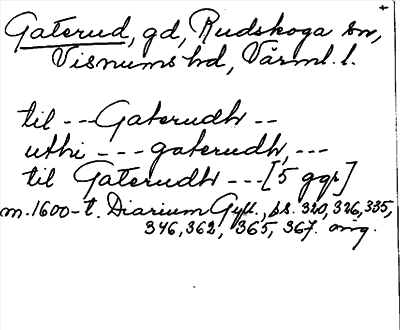 Gaterud, gd, Rudskoga sn,
Visnums hd, Värml. l.
til --- Gaterudh --
uthi --- gaterudh, ---
til Gaterudh --- [5 ggr]
m. 1600-t. Diarium Gyll., bl. 320, 326, 335,
346, 362, 365, 367. orig.